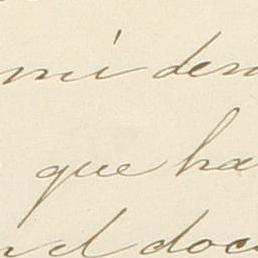 mi den
que ha
el doc